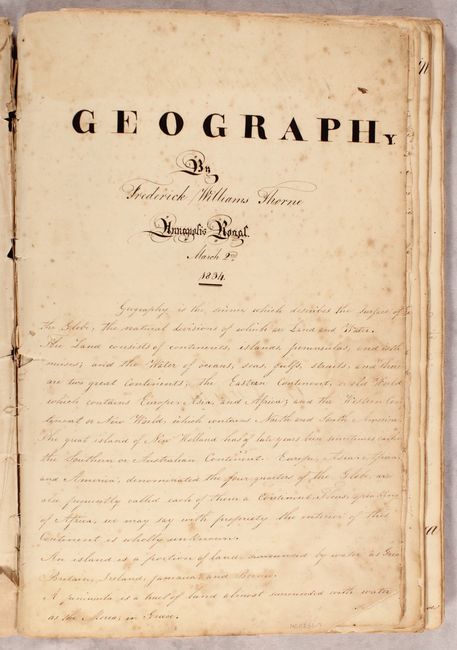 GEOGRAPHY
By
Frederick Williams Thorne
Annapolis Royal.
March 2nd
1834.
Geography is the science which describes the surface of
the Globe, the natural divisions of which are Land and Water.
The Land consists of continents, islands, peninsulas, and isth-
muses; and the Water of oceans, seas, gulfs, straits, and there
are two great Continents; the Eastern Continent, or Old World
which contains Europe, Asia, and Africa; and the Western Con-
tinent or New World, which contains North and South America.
The great island of New Holland has of late years been sometimes called
the Southern or Australian Continent. Europe, Asia, Africa
and America, denominated the four quarters of the Globe, are
also frequently called each of them a Continent. Thus, speaking
of Africa, we may say with propriety the interior of this
Continent is wholly unknown.
An island is a portion of land surrounded by water as Great
Britain, Ireland, Jamaica, and
A peninsula is a tract of land almost surrounded with water
as the Morea, in Greece.